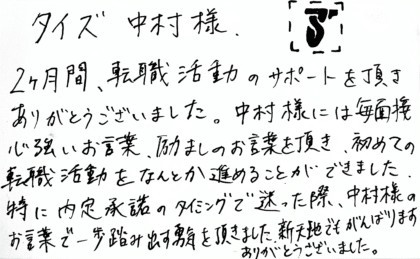 タイズ 中村様.
2ヶ月間、転職活動のサポートを頂き
ありがとうございました。中村様には毎面接
心強いお言葉、励ましのお言葉を頂き、初めての
転職活動をなんとか進めることができました.
特に内定承諾のタイミングで迷った際、中村様の
お言葉で一歩踏み出す勇気を頂きました.新天地でもがんばります
ありがとうございました。